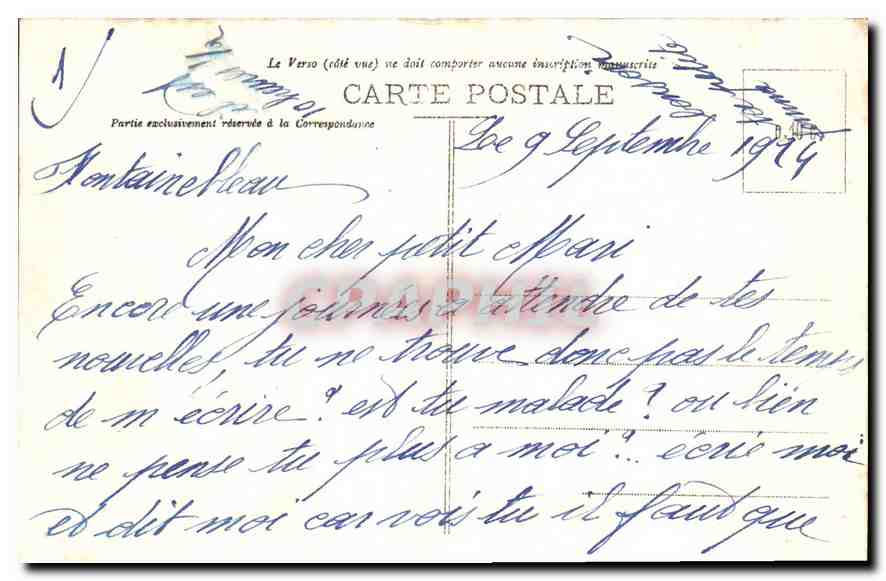 1)
Le Verso (côté vue) ne doit comporter aucune inscription manuscrite
CARTE POSTALE
Partie exclusivement réservée à la Correspondance
Le 9 Septembre 1914
Fontainebleau
Mon cher petit Mari
Encore une journées a attendre de tes
nouvelles, tu ne trouve donc pas le temps
de m'écrire? est tu malade? ou bien
ne pense tu plus a moi?.. écrie moi
et dit moi car vois tu il faut que